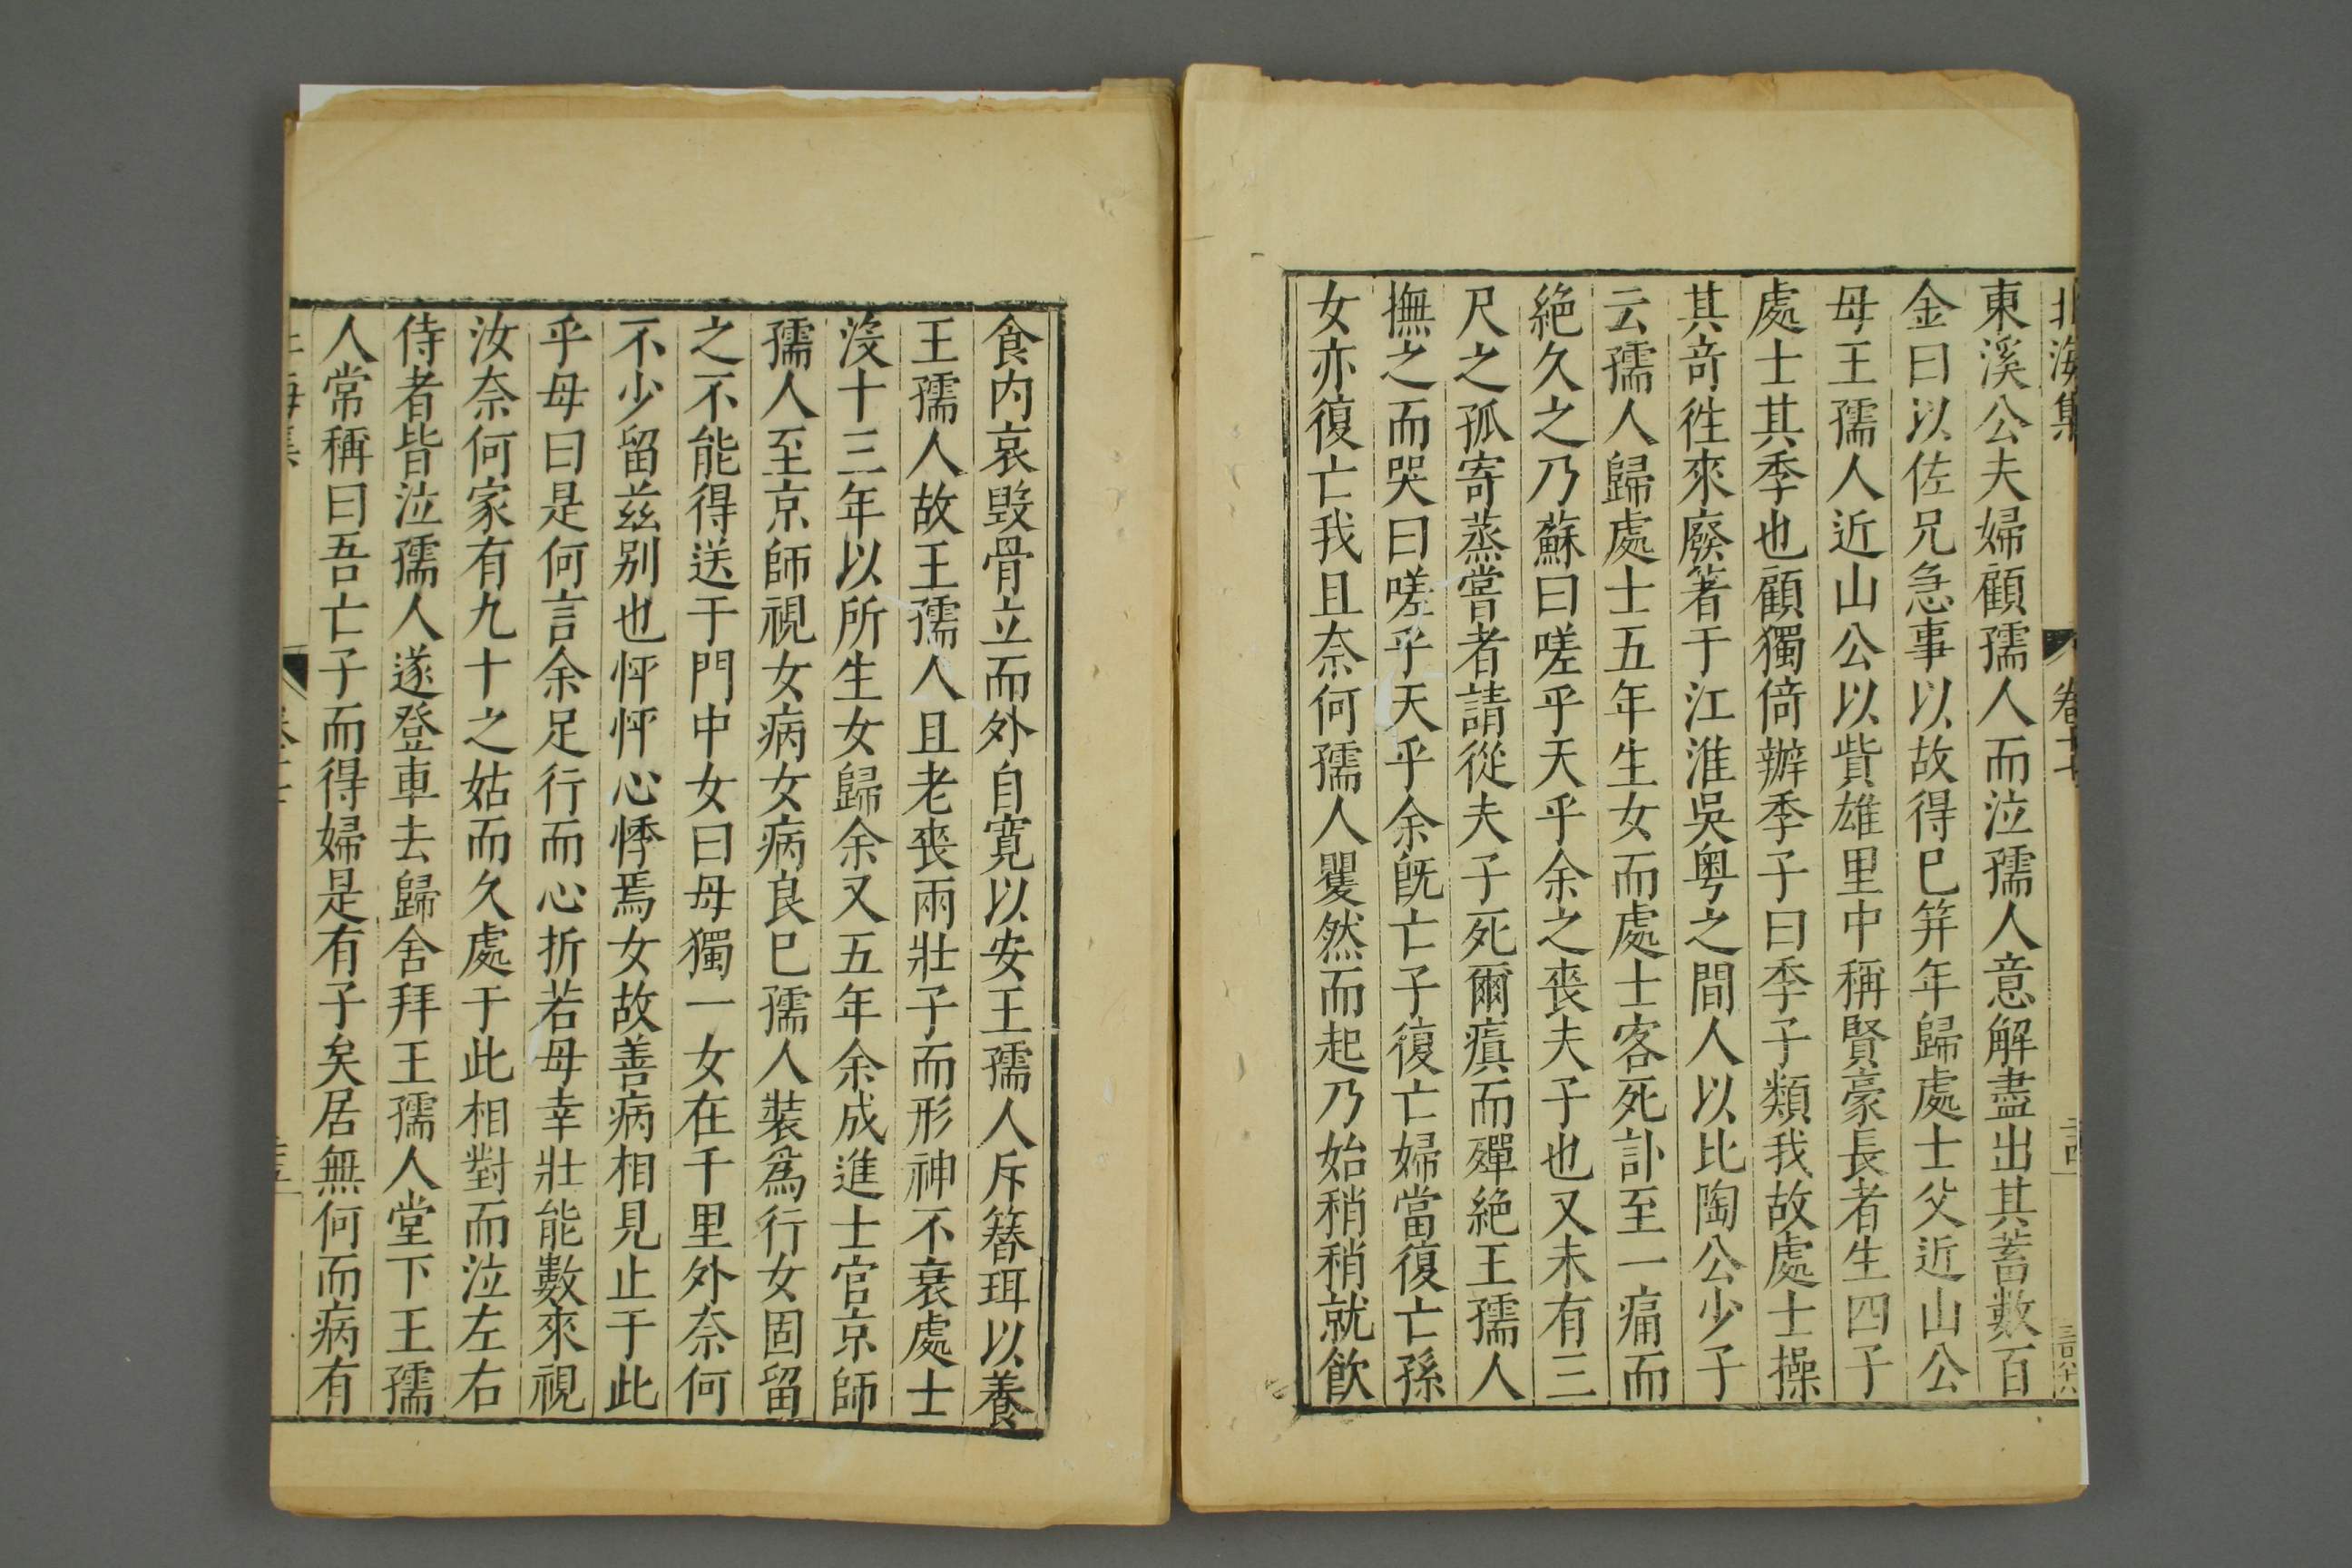 北海集 卷十七
東溪公夫婦顧孺人而泣孺人意解盡出其蓄數百
金曰以佐兄急事以故得已笄年歸處士父近山公
母王孺人近山公以貲雄里中稱賢豪長者生四子
處士其季也顧獨倚辦季子曰季子類我故處士操
其奇徃來廢箸于江淮吳粤之間人以比陶公少子
云孺人歸處士五年生女而處士客死訃至一痛而
絕久之乃蘇曰嗟乎天乎余之喪夫子也又未有三
尺之孤寄蒸嘗者請從夫子死爾瘨而殫絕王孺人
撫之而哭曰嗟乎天乎余旣亡子復亡婦當復亡孫
女亦復亡我且奈何孺人矍然而起乃始稍稍就飲
食内哀毀骨立而外自寬以安王孺人斥簪珥以養
王孺人故王孺人且老喪兩壯子而形神不衰處士
沒十三年以所生女歸余又五年余成進士官京師
孺人至京師視女病女病良已孺人裝爲行女固留
之不能得送于門中女曰母獨一女在千里外奈何
不少留兹别也怦怦心悸焉女故善病相見止于此
乎母曰是何言余足行而心折若母幸壯能數來視
汝奈何家有九十之姑而久處于此相對而泣左右
侍者皆泣孺人遂登車去歸舍拜王孺人堂下王孺
人常稱曰吾亡子而得婦是有子矣居無何而病有